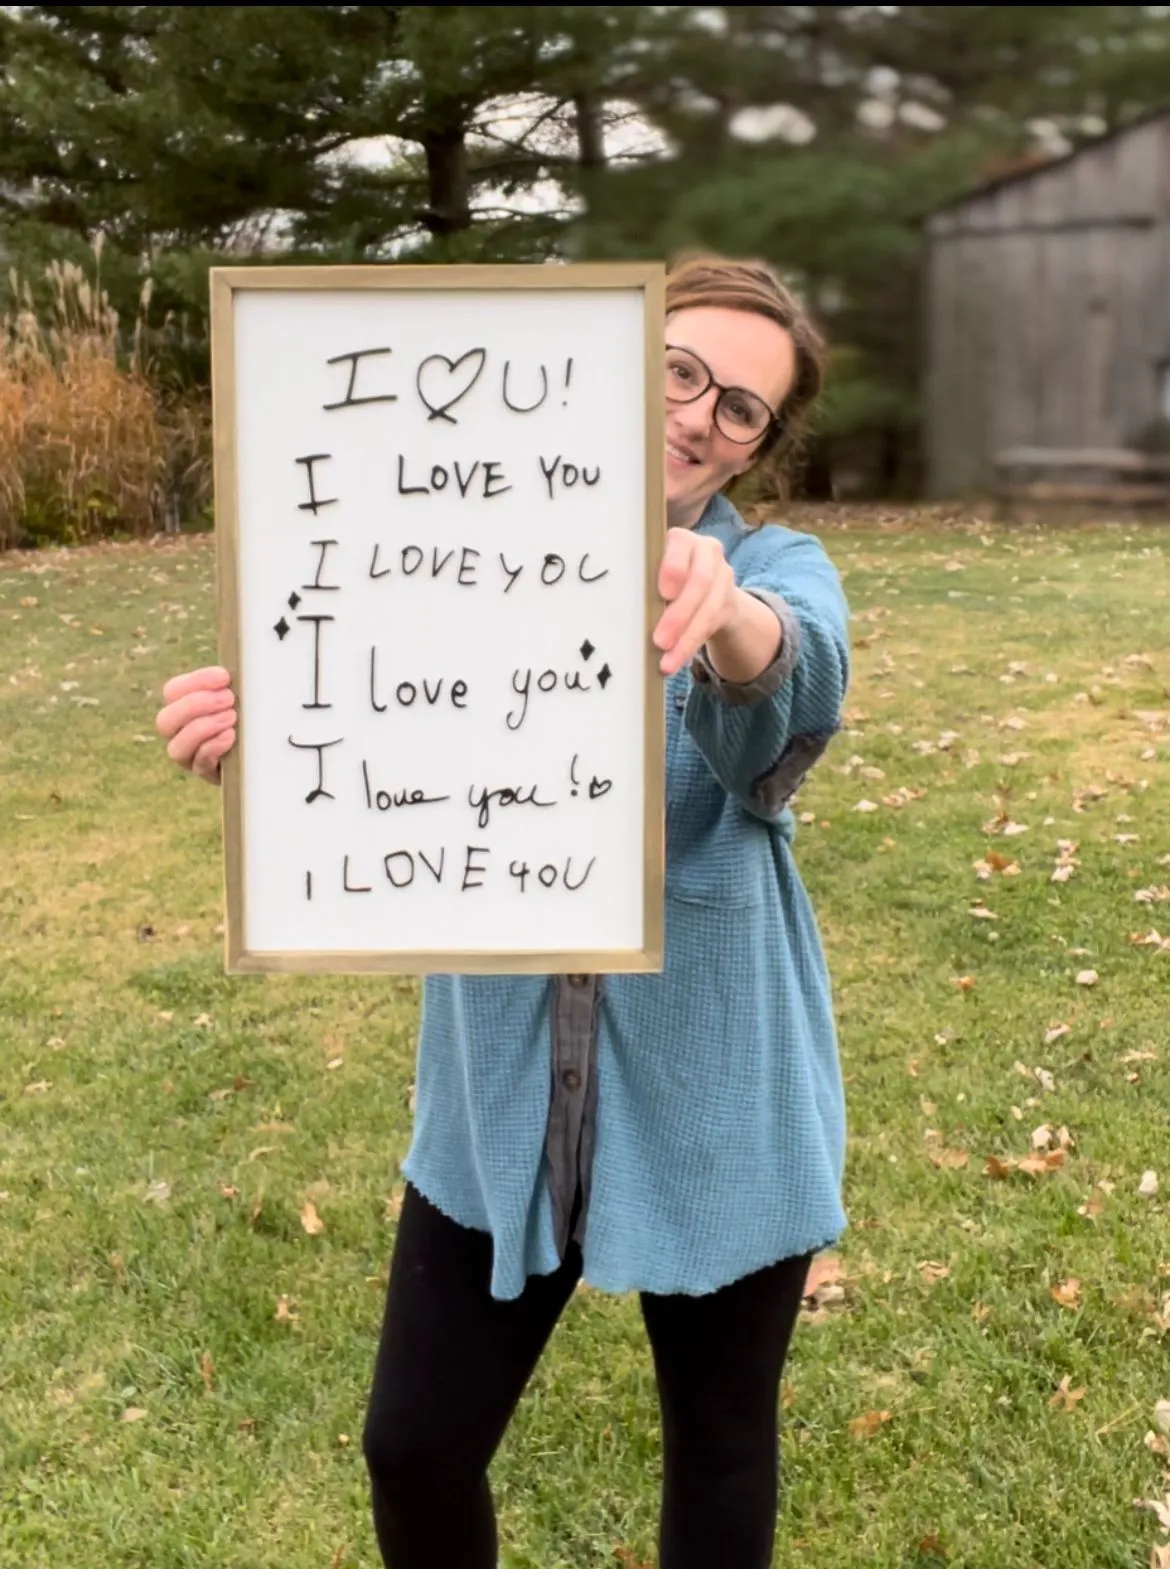 I ♡ U!
I LOVE YOU
I LOVE YOU
I love you
I love you!♡
I LOVE YOU